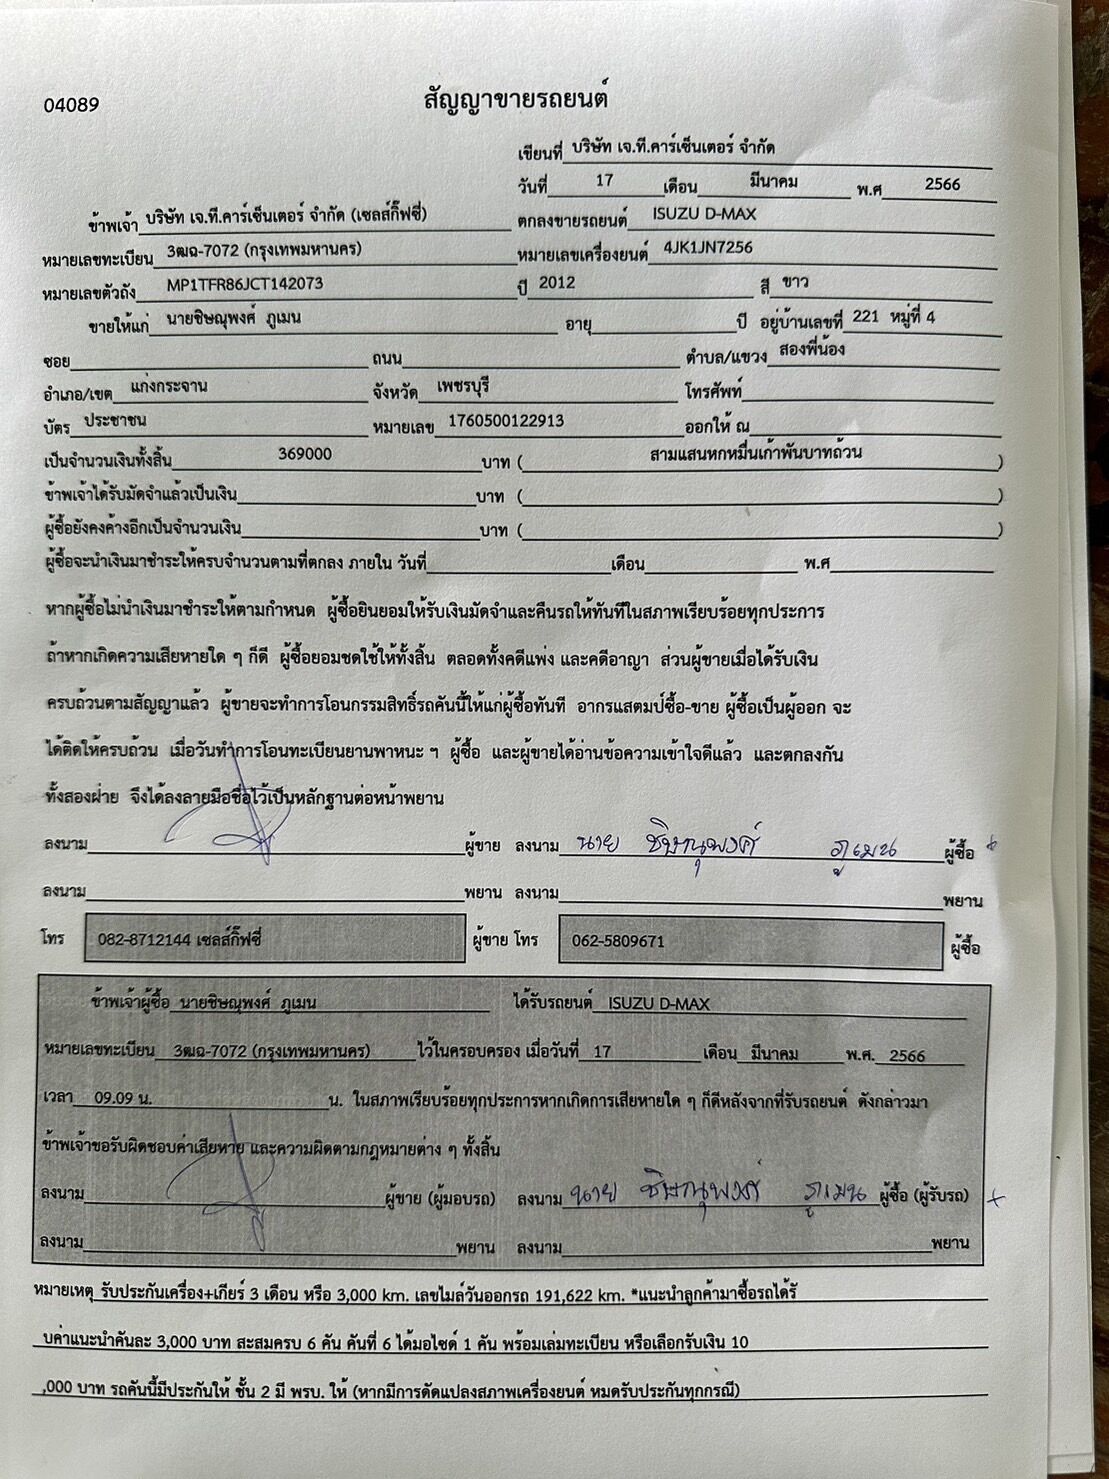 04089
สัญญาขายรถยนต์
เขียนที่ บริษัท เจ.ที.คาร์เซ็นเตอร์ จำกัด
วันที่ 17 เดือน มีนาคม พ.ศ 2566
ข้าพเจ้า บริษัท เจ.ที.คาร์เซ็นเตอร์ จำกัด (เซลส์กิ๊ฟซี่) ตกลงขายรถยนต์ ISUZU D-MAX
หมายเลขทะเบียน 3ฒฉ-7072 (กรุงเทพมหานคร) หมายเลขเครื่องยนต์ 4JK1JN7256
หมายเลขตัวถัง MP1TFR86JCT142073 ปี 2012 สี ขาว
ขายให้แก่ นายชิษณุพงศ์ ภูเมน อายุ ปี อยู่บ้านเลขที่ 221 หมู่ที่ 4
ซอย ถนน ตำบล/แขวง สองพี่น้อง
อำเภอ/เขต แก่งกระจาน จังหวัด เพชรบุรี โทรศัพท์
บัตร ประชาชน หมายเลข 1760500122913 ออกให้ ณ
เป็นจำนวนเงินทั้งสิ้น 369000 บาท ( สามแสนหกหมื่นเก้าพันบาทถ้วน )
ข้าพเจ้าได้รับมัดจำแล้วเป็นเงิน บาท ( )
ผู้ซื้อยังคงค้างอีกเป็นจำนวนเงิน บาท ( )
ผู้ซื้อจะนำเงินมาชำระให้ครบจำนวนตามที่ตกลง ภายใน วันที่ เดือน พ.ศ
หากผู้ซื้อไม่นำเงินมาชำระให้ตามกำหนด ผู้ซื้อยินยอมให้รับเงินมัดจำและคืนรถให้ทันทีในสภาพเรียบร้อยทุกประการ
ถ้าหากเกิดความเสียหายใด ๆ ก็ดี ผู้ซื้อยอมชดใช้ให้ทั้งสิ้น ตลอดทั้งคดีแพ่ง และคดีอาญา ส่วนผู้ขายเมื่อได้รับเงิน
ครบถ้วนตามสัญญาแล้ว ผู้ขายจะทำการโอนกรรมสิทธิ์รถคันนี้ให้แก่ผู้ซื้อทันที อากรแสตมป์ซื้อ-ขาย ผู้ซื้อเป็นผู้ออก จะ
ได้ติดให้ครบถ้วน เมื่อวันทำการโอนทะเบียนยานพาหนะ ฯ ผู้ซื้อ และผู้ขายได้อ่านข้อความเข้าใจดีแล้ว และตกลงกัน
ทั้งสองฝ่าย จึงได้ลงลายมือชื่อไว้เป็นหลักฐานต่อหน้าพยาน
ลงนาม ผู้ขาย ลงนาม นาย ชิษณุพงศ์ ภูเมน ผู้ซื้อ
ลงนาม พยาน ลงนาม พยาน
โทร 082-8712144 เซลส์กิ๊ฟซี่ ผู้ขาย โทร 062-5809671 ผู้ซื้อ
ข้าพเจ้าผู้ซื้อ นายชิษณุพงศ์ ภูเมน ได้รับรถยนต์ ISUZU D-MAX
หมายเลขทะเบียน 3ฒฉ-7072 (กรุงเทพมหานคร) ไว้ในครอบครอง เมื่อวันที่ 17 เดือน มีนาคม พ.ศ. 2566
เวลา 09.09 น. น. ในสภาพเรียบร้อยทุกประการหากเกิดการเสียหายใด ๆ ก็ดีหลังจากที่รับรถยนต์ ดังกล่าวมา
ข้าพเจ้าขอรับผิดชอบค่าเสียหาย และความผิดตามกฎหมายต่าง ๆ ทั้งสิ้น
ลงนาม ผู้ขาย (ผู้มอบรถ) ลงนาม นาย ชิษณุพงศ์ ภูเมน ผู้ซื้อ (ผู้รับรถ)
ลงนาม พยาน ลงนาม พยาน
หมายเหตุ รับประกันเครื่อง+เกียร์ 3 เดือน หรือ 3,000 km. เลขไมล์วันออกรถ 191,622 km. *แนะนำลูกค้ามาซื้อรถได้รั
บค่าแนะนำคันละ 3,000 บาท สะสมครบ 6 คัน คันที่ 6 ได้มอไซด์ 1 คัน พร้อมเล่มทะเบียน หรือเลือกรับเงิน 10
,000 บาท รถคันนี้มีประกันให้ ชั้น 2 มี พรบ. ให้ (หากมีการดัดแปลงสภาพเครื่องยนต์ หมดรับประกันทุกกรณี)